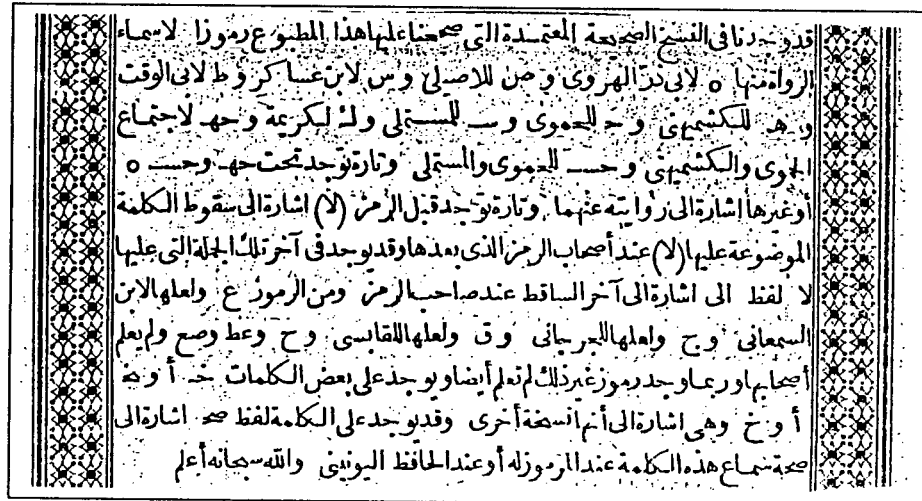 قد وجدنا في النسخ الصحيحة المعتمدة التي صححنا عليها هذا المطبوع رموزا لاسماء
الرواة منها ه لابى ذر الهروى و ص للاصيلى و س لابن عساكر و ط لابى الوقت
و هـ للكشميهنى و ح للحموى و ســ للمستملى و ك لكريمة و حهـ لاجتماع
الحموى والكشميهنى و حســ للحموى والمستملى وتارة توجد تحت حهـ وحســ ه
أو غيرها اشارة الى روايته عنهما وتارة توجد قبل الرمز (لا) اشارة الى سقوط الكلمة
الموضوعة عليها (لا) عند أصحاب الرمز الذى بعدها وقد يوجد فى آخر تلك الجملة التى عليها
لا لفظ الى اشارة الى آخر الساقط عند صاحب الرمز ومن الرموز ع ولعلها لابن
السمعانى و ج ولعلها للجرجانى و ق ولعلها للقابسى و ح و عط و صع ولم يعلم
أصحابها وربما وجد رموز غير ذلك لم تعلم أيضا ويوجد على بعض الكلمات خـ أو نخة
أو خ وهى اشارة الى أنها نسخة أخرى وقد يوجد على الكلمة لفظ صحـ اشارة الى
صحة سماع هذه الكلمة عند المرموز له أو عند الحافظ اليونينى والله سبحانه أعلم